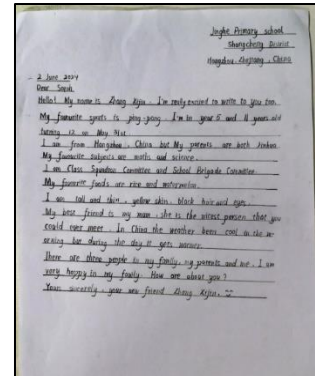 Jinghe Primary school
Shangcheng District
Hangzhou, Zhejiang, China
2 June 2024
Dear Sarah,
Hello! My name is Zhang Kijin. I'm really excited to write to you too.
My favourite sports is ping-pong. I'm in year 5 and 11 years old
turning 12 on May 31st.
I am from Hangzhou, China but My parents are both Jinhua.
My favourite subjects are maths and science.
I am Class Squadron Committee and School Brigade Committee.
My favorite foods are rice and watermelon.
I am tall and thin, yellow skin, black hair and eyes.
My best friend is my mom, she is the nicest person that you
could ever meet. In China the weather been cool in the mo-
rning but during the day it gets warmer.
There are three people in my family, my parents and me. I am
very happy in my family. How are about you?
Yours sincerely, your new friend Zhang Kijin.